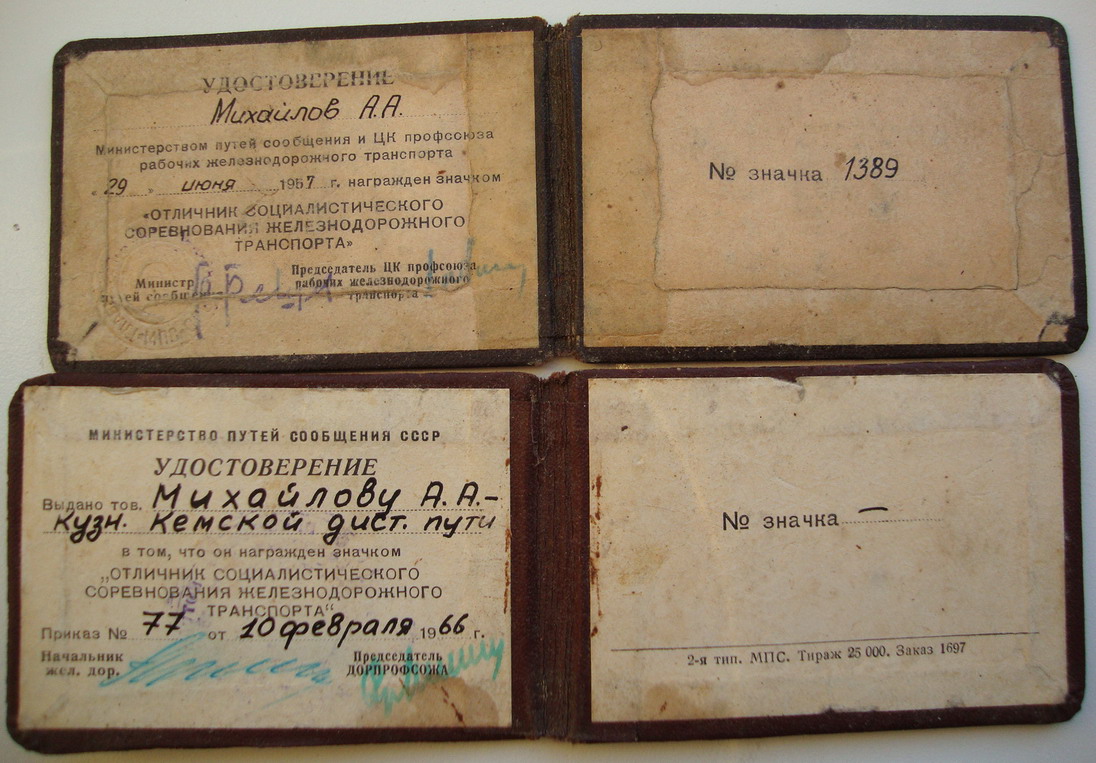 УДОСТОВЕРЕНИЕ
Михайлов А.А.
Министерством путей сообщения и ЦК профсоюза
рабочих железнодорожного транспорта
„29" июня 1957 г. награжден значком
«ОТЛИЧНИК СОЦИАЛИСТИЧЕСКОГО
СОРЕВНОВАНИЯ ЖЕЛЕЗНОДОРОЖНОГО
ТРАНСПОРТА»
Министр
путей сообщения
Председатель ЦК профсоюза
рабочих железнодорожного
транспорта
№ значка 1389
МИНИСТЕРСТВО ПУТЕЙ СООБЩЕНИЯ СССР
УДОСТОВЕРЕНИЕ
Выдано тов. Михайлову А.А.-
кузн. Кемской дист. пути
в том, что он награжден значком
„ОТЛИЧНИК СОЦИАЛИСТИЧЕСКОГО
СОРЕВНОВАНИЯ ЖЕЛЕЗНОДОРОЖНОГО
ТРАНСПОРТА“
Приказ № 77 от 10 февраля 1966 г.
Начальник
жел. дор.
Председатель
ДОРПРОФСОЖА
№ значка —
2-я тип. МПС. Тираж 25 000. Заказ 1697